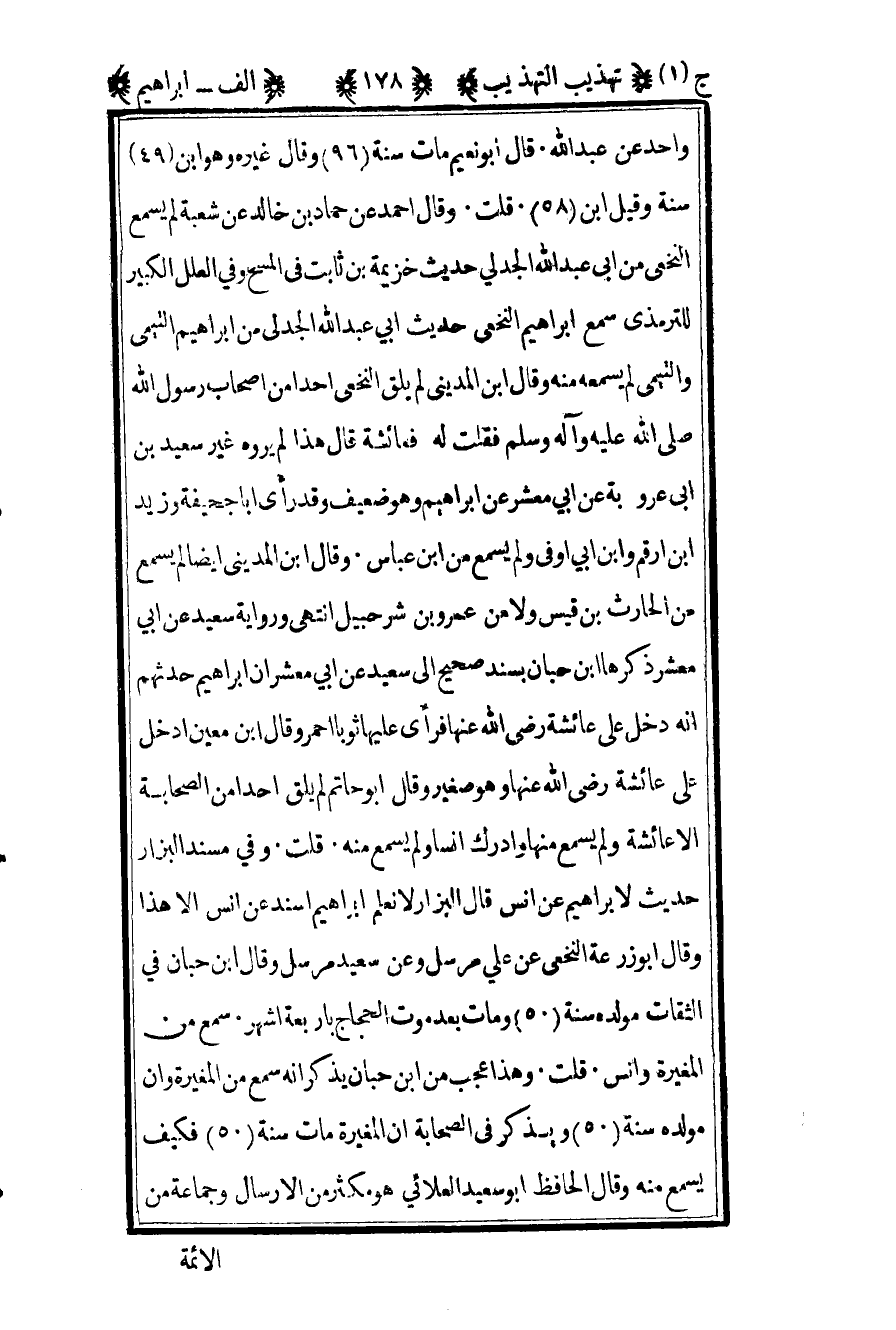 ج (١) تهذيب التهذيب ١٧٨ الف ــ ابراهيم
واحد عن عبدالله ٠ قال ابونعيم مات سنة (٩٦) وقال غيره وهو ابن (٤٩)
سنة وقيل ابن (٥٨) ٠ قلت ٠ وقال احمد عن حماد بن خالد عن شعبة لم يسمع
النخعى من ابى عبدالله الجدلي حديث خزيمة بن ثابت فى المسح وفي العلل الكبير
للترمذى سمع ابراهيم النخعى حديث ابي عبدالله الجدلى من ابراهيم التيمى
والتيمى لم يسمعه منه وقال ابن المدينى لم يلق النخعى احدا من اصحاب رسول الله
صلى الله عليه وآله وسلم فقلت له فعائشة قال هذا لم يروه غير سعيد بن
ابى عروبة عن ابي معشر عن ابراهيم وهو ضعيف وقد رأى ابا جحيفة وزيد
ابن ارقم وابن ابي اوفى ولم يسمع من ابن عباس ٠ وقال ابن المدينى ايضا لم يسمع
من الحارث بن قيس ولا من عمرو بن شرحبيل انتهى ورواية سعيد عن ابي
معشر ذكرها ابن حبان بسند صحيح الى سعيد عن ابي معشر ان ابراهيم حدثهم
انه دخل على عائشة رضى الله عنها فرأى عليها ثوبا احمر وقال ابن معين ادخل
على عائشة رضى الله عنها وهو صغير وقال ابو حاتم لم يلق احدا من الصحابـة
الا عائشة ولم يسمع منها وادرك انسا ولم يسمع منه ٠ قلت ٠ وفي مسند البزار
حديث لابراهيم عن انس قال البزار لانعلم ابراهيم اسند عن انس الا هذا
وقال ابوزرعة النخعى عن علي مرسل وعن سعيد مرسل وقال ابن حبان في
الثقات مولده سنة (٥٠) ومات بعد موت الحجاج باربعة اشهر ٠ سمع من
المغيرة وانس ٠ قلت ٠ وهذا عجب من ابن حبان يذكر انه سمع من المغيرة وان
مولده سنة (٥٠) ويـذكر فى الصحابة ان المغيرة مات سنة (٥٠) فكيف
يسمع منه وقال الحافظ ابو سعيد العلائي هو مكثر من الارسال وجماعة من
الائمة